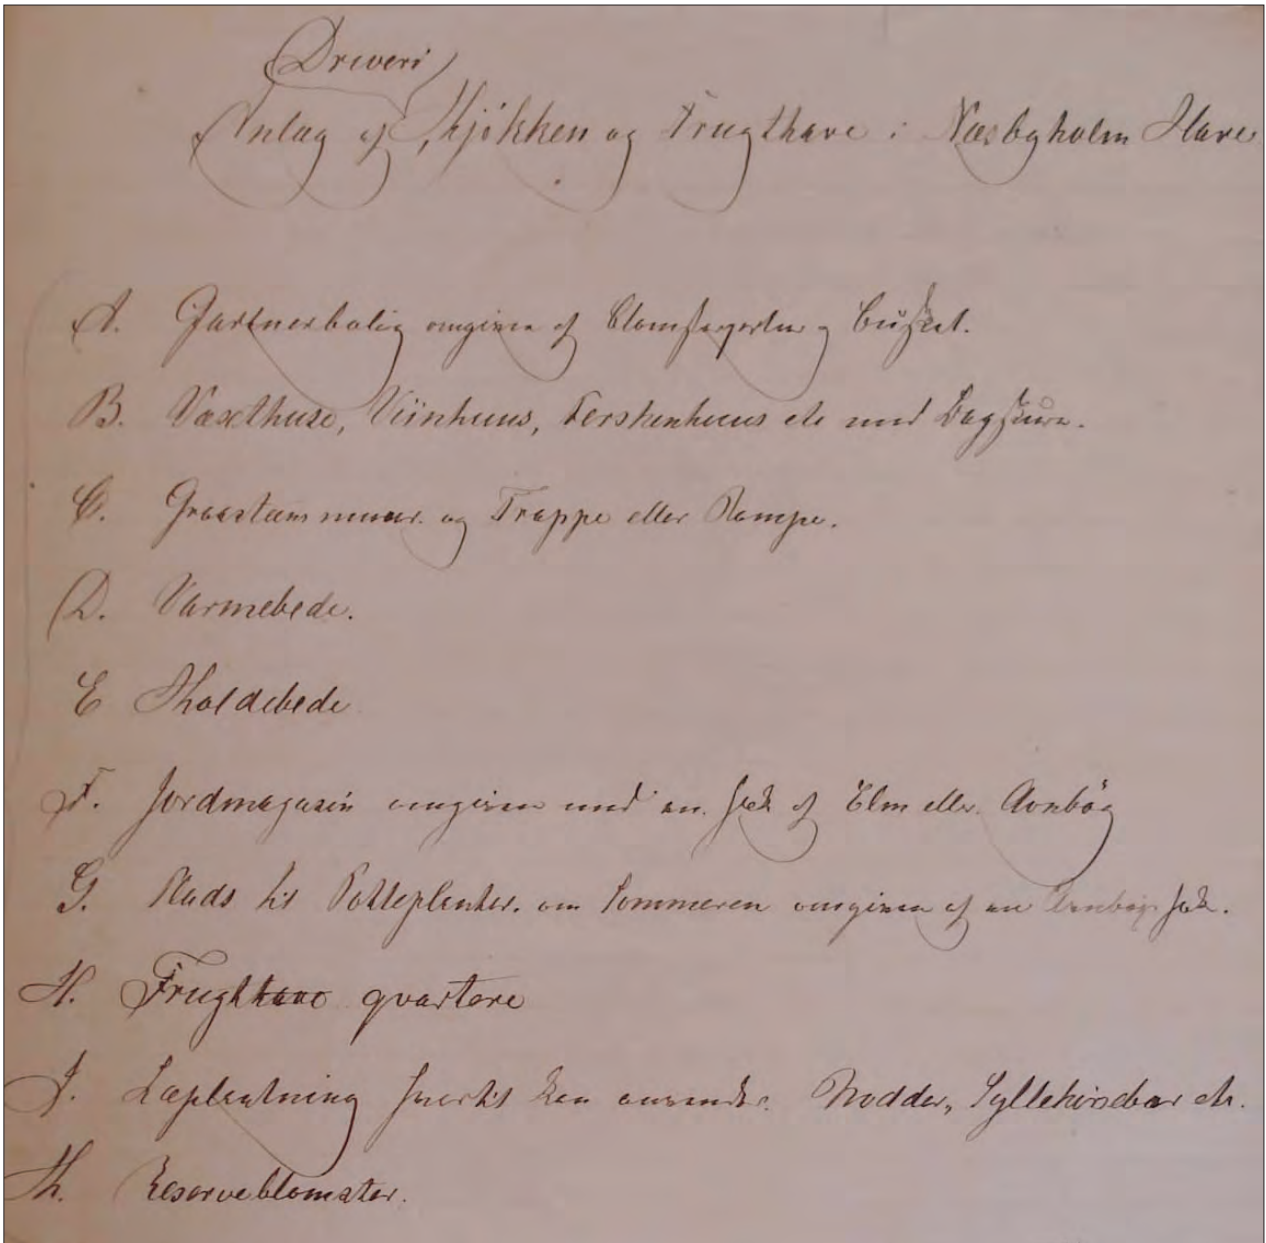 Driveri
Anlæg af Kjøkken og Frugthave i Næsbyholm Have
A. Gartnerbolig omgiven af Blomsterpartier og Busket.
B. Væxthuse, Viinhuus, Ferskenhuus etc med Bagskure.
C. Graasteensmuur og Trappe eller Rampe.
D. Varmebede.
E Koldebede
F. Jordmagasin omgiven med en Hæk af Elm eller Avnbøg
G. Plads til Potteplanter om Sommeren omgiven af en Avnbøg Hæk.
H. Frugthave qvartere
J. Læplantning hvortil kan anvendes Nødder, Syltekirsebær etc.
K. Reserveblomster.